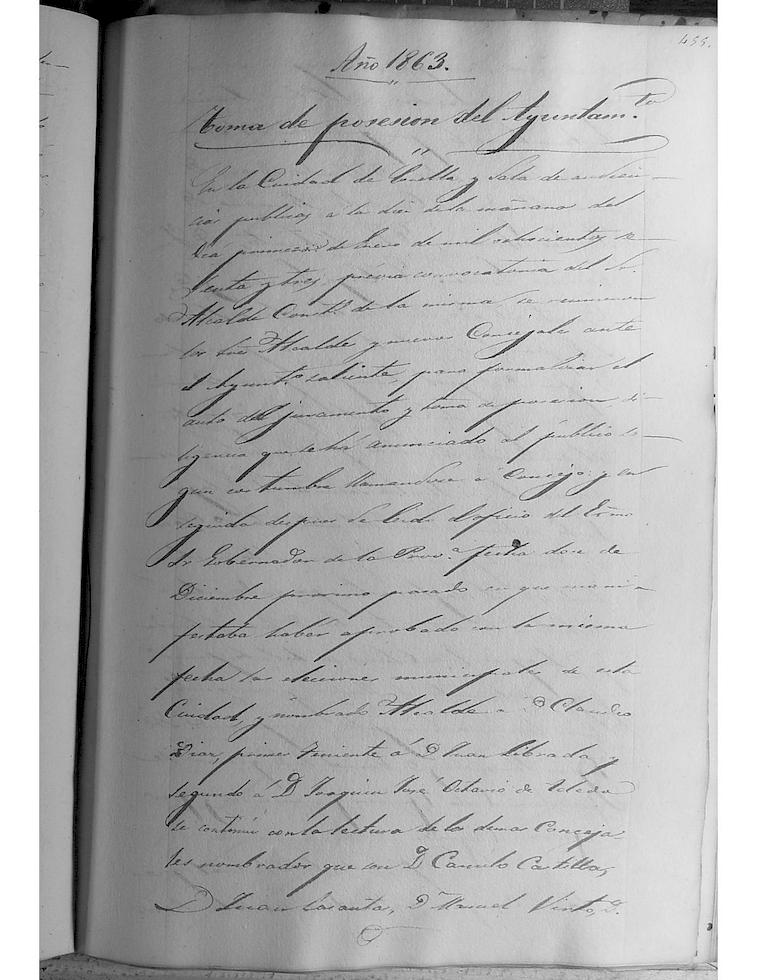 455.
Año 1863.
Toma de posesion del Ayuntam.to
En la Ciudad de y Sala de audien-
cias publicas a la diez de la mañana del
dia primero de Enero de mil ochocientos se-
senta y tres, previa convocatoria del Sr.
Alcalde Const.l de la misma, se reunieron
los Sres Alcalde y nuevos Concejales ante
el Ayunt.o saliente, para formalizar el
auto del juramento y toma de posesion di-
ligencia que se ha anunciado al público se-
gun costumbre llamandose a Concejo: y en
seguida despues de leido el oficio del Exmo
Sr Gobernador de la Prov.a fecha doce de
Diciembre proximo pasado en que mani-
festaba haber aprobado con la misma
fecha las elecciones municipales de esta
Ciudad, y nombrado Alcalde a D Claudio
Diaz, primer Teniente á D Juan Librada y
segundo á D Joaquin José Octavio de Toledo
se continuó con la lectura de los demas Conceja-
les nombrados que son D Camilo Castilla,
D Juan D Manuel D.